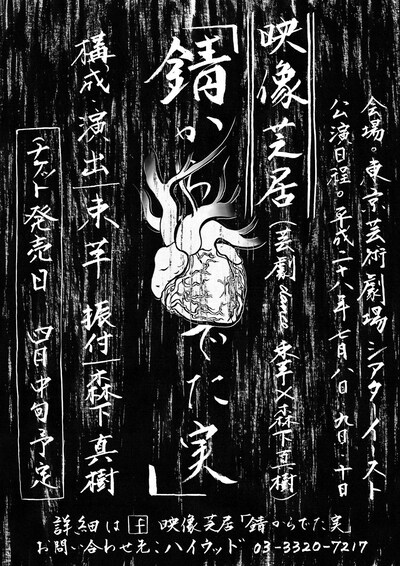 会場。東京芸術劇場シアターイースト
公演日程。平成二十八年七月八日、九日、十日
映像芝居
(芸劇dance 束芋×森下真樹)
「錆からでた実」
構成・演出|束芋 振付|森下真樹
チケット発売日 四月中旬予定
詳細は f 映像芝居「錆からでた実」
お問い合わせ先:ハイウッド 03-3320-7217